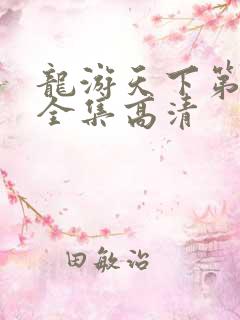 龍游天下第
全集高清
田敏治